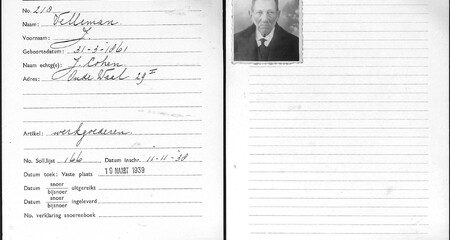 No. 218
Naam: Velleman
Voornaam: J.
Geboortedatum: 31-3-1861
Naam echtg(e): J. Cohen
Adres: Oude Waal 29 I
Artikel: werkgoederen
No. Soll.lijst 166 Datum inschr. 11-11-'38
Datum toek: Vaste plaats 10 MAART 1939
Datum snoer bijsnoer uitgereikt
Datum snoer bijsnoer ingeleverd
No. verklaring snoerenboek